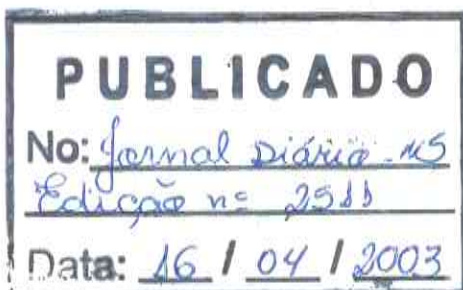 PUBLICADO
No: Jornal Diário-MS
Edição nº 2511
Data: 16 / 04 / 2003